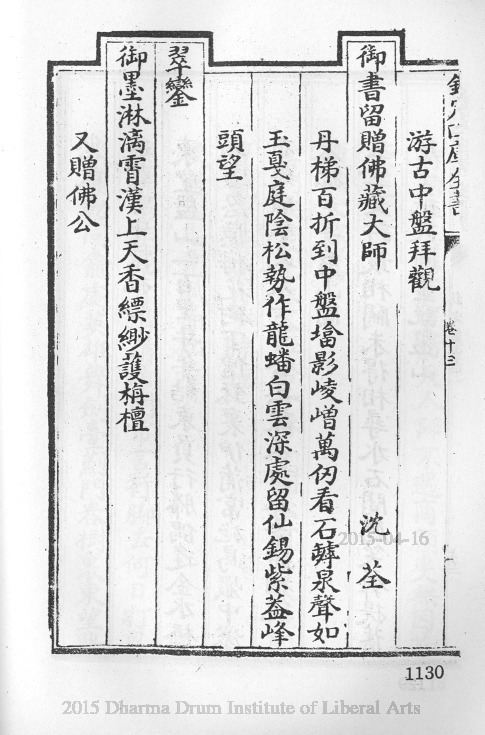 欽定四庫全書
卷十三
游古中盤拜觀
御書留贈佛藏大師
沈荃
丹梯百折到中盤墖影崚嶒萬仞看石罅泉聲如
玉戛庭陰松勢作龍蟠白雲深處留仙錫紫葢峰
頭望
翠鑾
御墨淋漓霄漢上天香縹緲護栴檀
又贈佛公
2015-04-16
1130
2015 Dharma Drum Institute of Liberal Arts